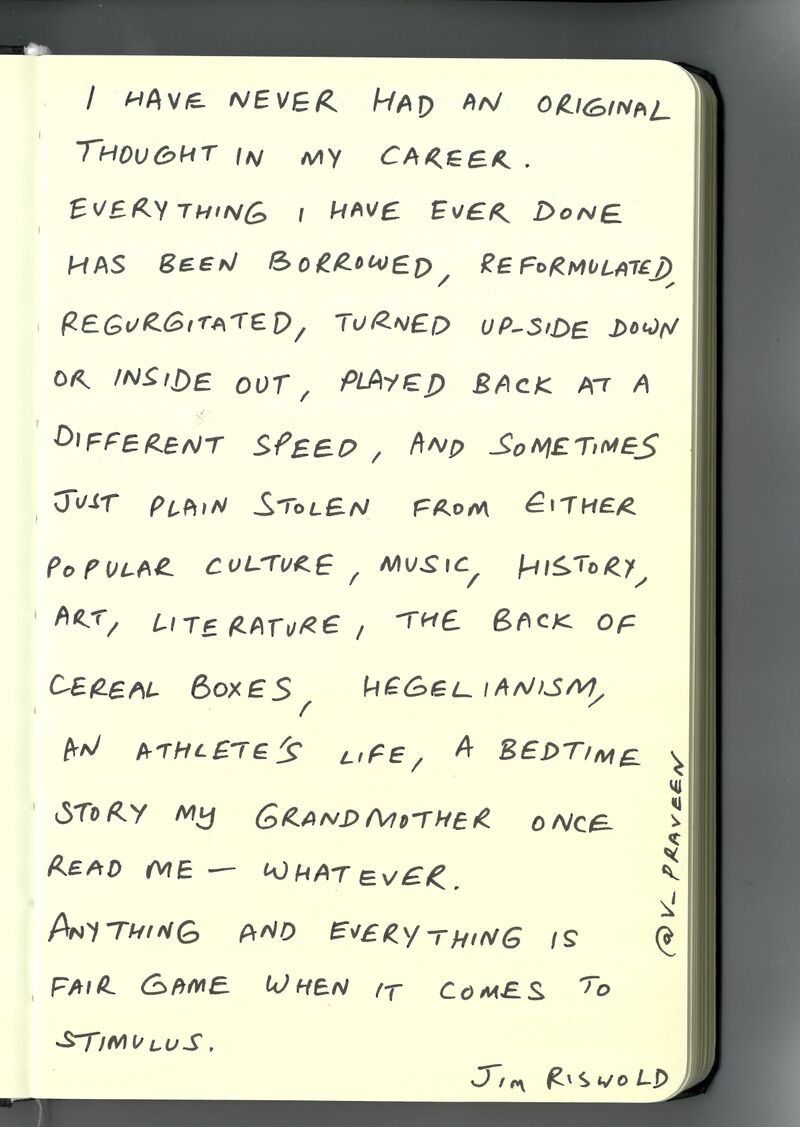 I HAVE NEVER HAD AN ORIGINAL
THOUGHT IN MY CAREER.
EVERYTHING I HAVE EVER DONE
HAS BEEN BORROWED, REFORMULATED,
REGURGITATED, TURNED UP-SIDE DOWN
OR INSIDE OUT, PLAYED BACK AT A
DIFFERENT SPEED, AND SOMETIMES
JUST PLAIN STOLEN FROM EITHER
POPULAR CULTURE, MUSIC, HISTORY,
ART, LITERATURE, THE BACK OF
CEREAL BOXES, HEGELIANISM,
AN ATHLETE'S LIFE, A BEDTIME
STORY MY GRANDMOTHER ONCE
READ ME — WHATEVER.
ANYTHING AND EVERYTHING IS
FAIR GAME WHEN IT COMES TO
STIMULUS.
JIM RISWOLD
@V_PRAVEEN